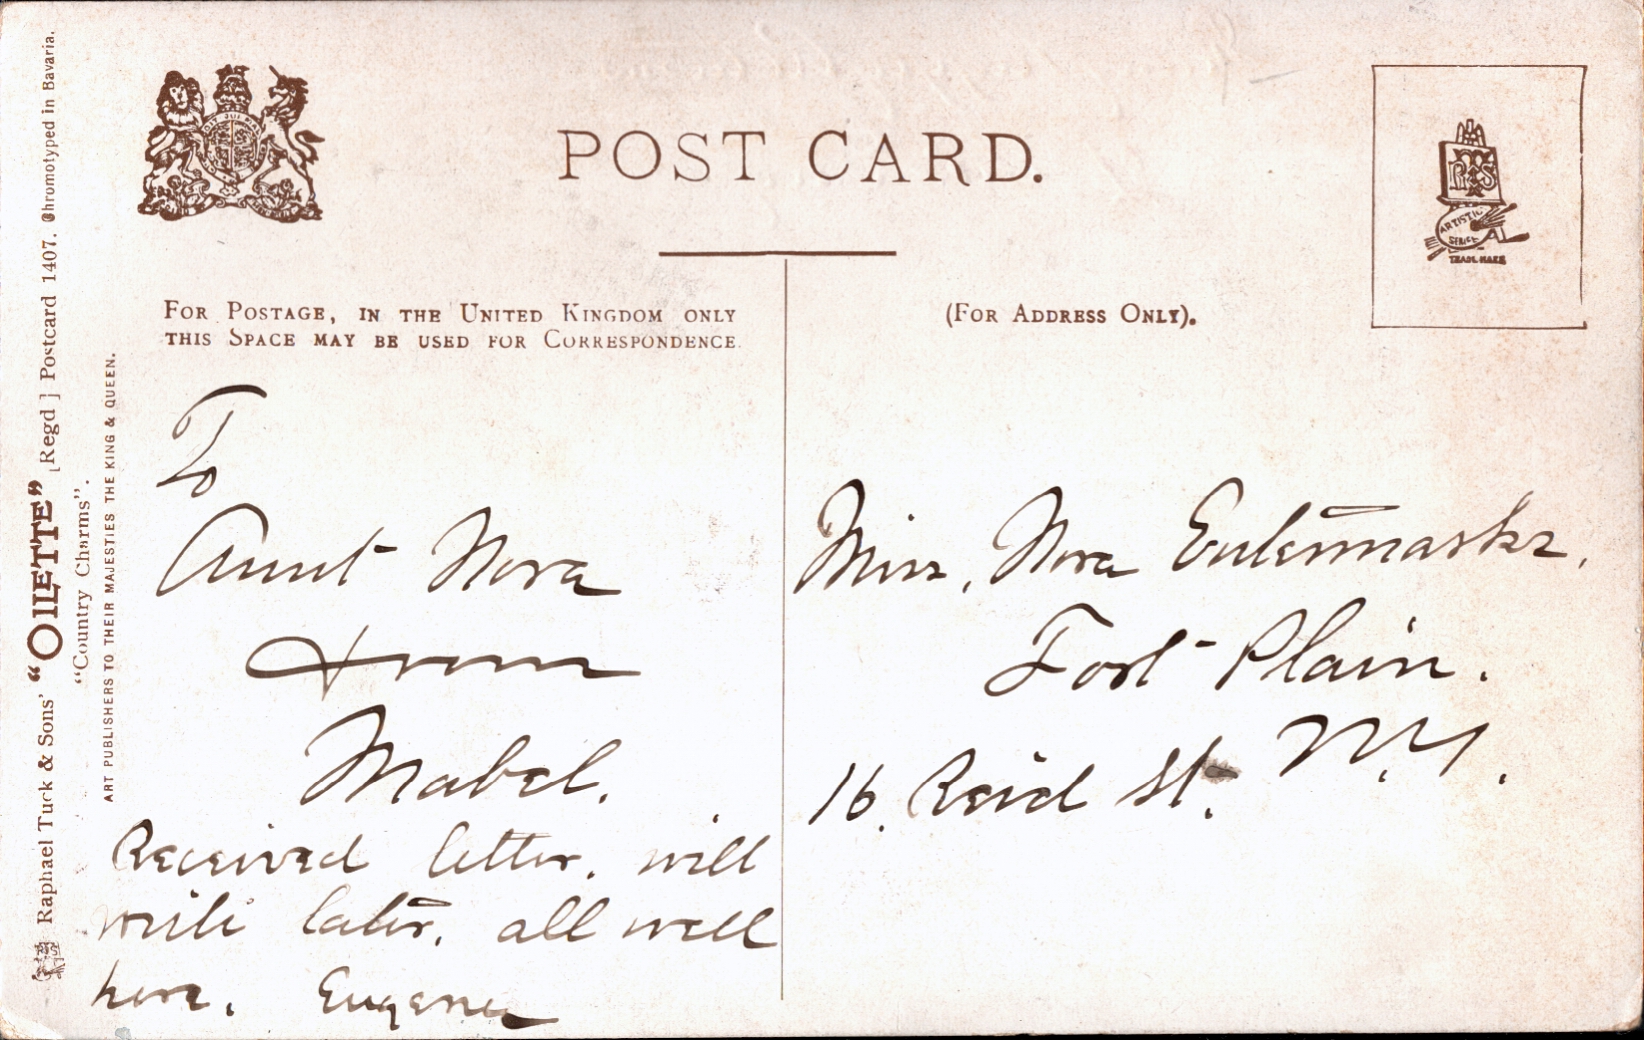 POST CARD.
ARTISTIC
SERIES
TRADE MARK
FOR POSTAGE, IN THE UNITED KINGDOM ONLY
THIS SPACE MAY BE USED FOR CORRESPONDENCE.
(FOR ADDRESS ONLY).
To
Aunt Nora
from
Mabel.
Received letter. will
write later. all well
here. Eugene
Miss, Nora
Fort Plain.
N.Y.
16. Reid St.
Raphael Tuck & Sons' "OILETTE" [Regd] Postcard 1407. Chromotyped in Bavaria.
"Country Charms".
ART PUBLISHERS TO THEIR MAJESTIES THE KING & QUEEN.